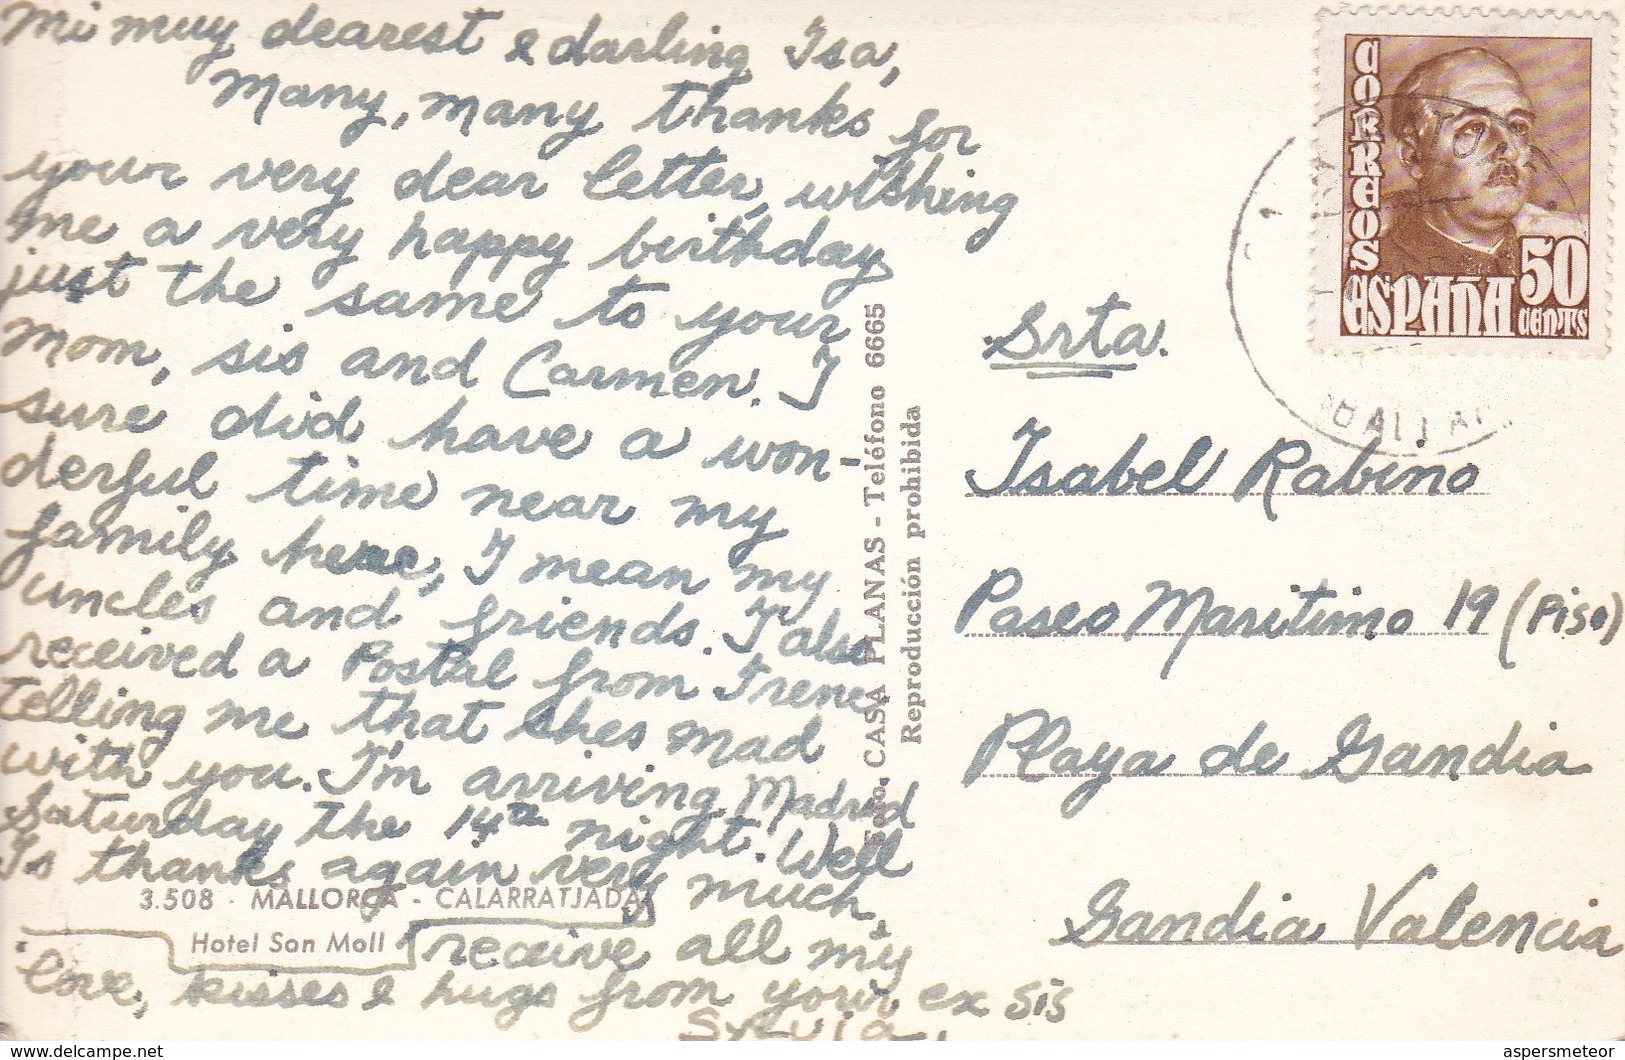 Mi muy dearest & darling Isa,
Many, many thanks for
your very dear letter, wishing
me a very happy birthday
just the same to your
mom, sis and Carmen. I
sure did have a won-
derful time near my
family here, I mean my
uncles and friends. I also
received a Postal from Irene,
telling me that shes mad
with you. I'm arriving Madrid
Saturday the 14th night. Well
Is thanks again very much,
receive all my
love, kisses & hugs from your ex sis
Sylvia.
3.508 - MALLORCA - CALARRATJADA
Hotel Son Moll
Foto. CASA PLANAS - Teléfono 6665
Reproducción prohibida
CORREOS
ESPAÑA 50
CENTS
Srta.
Isabel Rabino
Paseo Maritimo 19 (Piso)
Playa de Gandia
Gandia Valencia
delcampe.net
aspersmeteor